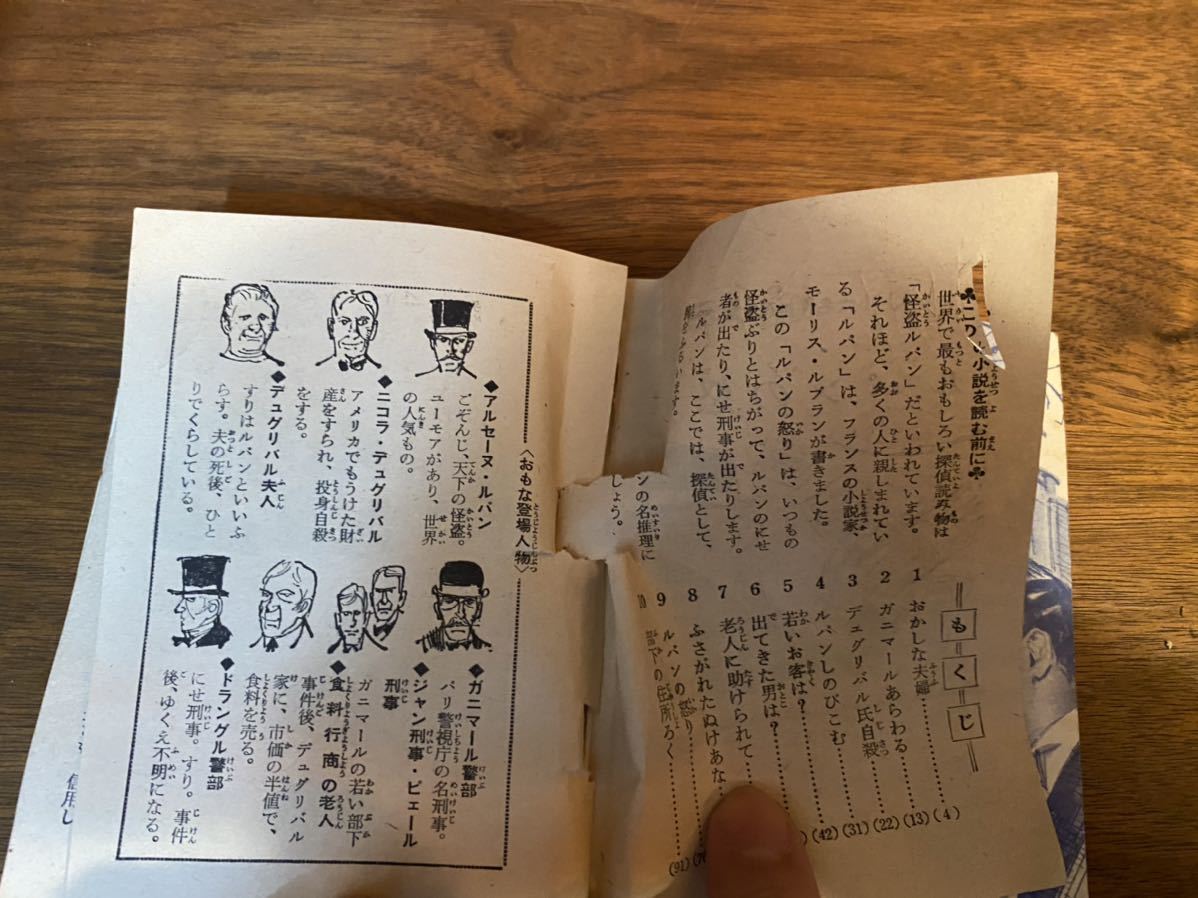 ♣この 小説を読む前に♣
世界で最もおもしろい探偵読み物は
「怪盗ルパン」だといわれています。
それほど、多くの人に親しまれてい
る「ルパン」は、フランスの小説家、
モーリス・ルブランが書きました。
この「ルパンの怒り」は、いつもの
怪盗ぶりとはちがって、ルパンのにせ
者が出たり、にせ刑事が出たりします。
ルパンは、ここでは、探偵として、
います。
ンの名推理に
しょう。
もくじ
1 おかしな夫婦……(4)
2 ガニマールあらわる……(13)
3 デュグリバル氏自殺……(22)
4 ルパンしのびこむ……(31)
5 若いお客は?……(42)
6 出てきた男は?……
7 老人に助けられて……
8 ふさがれたぬけあな
9 ルパンの怒り……
10 部下の住所ろく……(91)
〈おもな登場人物〉
◆アルセーヌ・ルパン
ごぞんじ、天下の怪盗。
ユーモアがあり、世界
の人気もの。
◆ニコラ・デュグリバル
アメリカでもうけた財
産をすられ、投身自殺
をする。
◆デュグリバル夫人
すりはルパンといいふ
らす。夫の死後、ひと
りでくらしている。
◆ガニマール警部
パリ警視庁の名刑事。
◆ジャン刑事・ピェール
刑事
ガニマールの若い部下
◆食料行商の老人
事件後、デュグリバル
家に、市価の半値で、
食料を売る。
◆ドラングル警部
にせ刑事。すり。事件
後、ゆくえ不明になる。
信用し